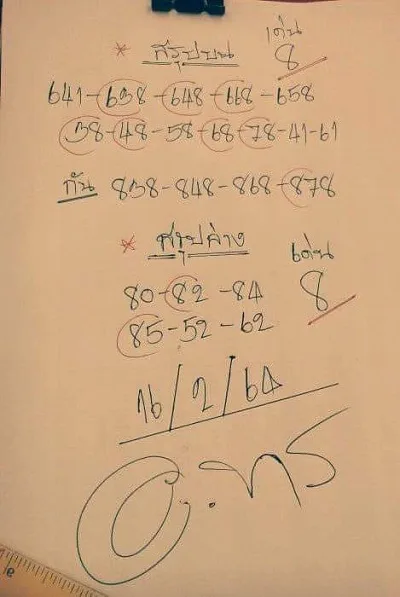 * สรุปบน เด่น 8
641-638-648-668-658
38-48-58-68-78-41-61
กัน 838-848-868-878
* สรุปล่าง เด่น 8
80-82-84
85-52-62
16/2/64
อ.ทร